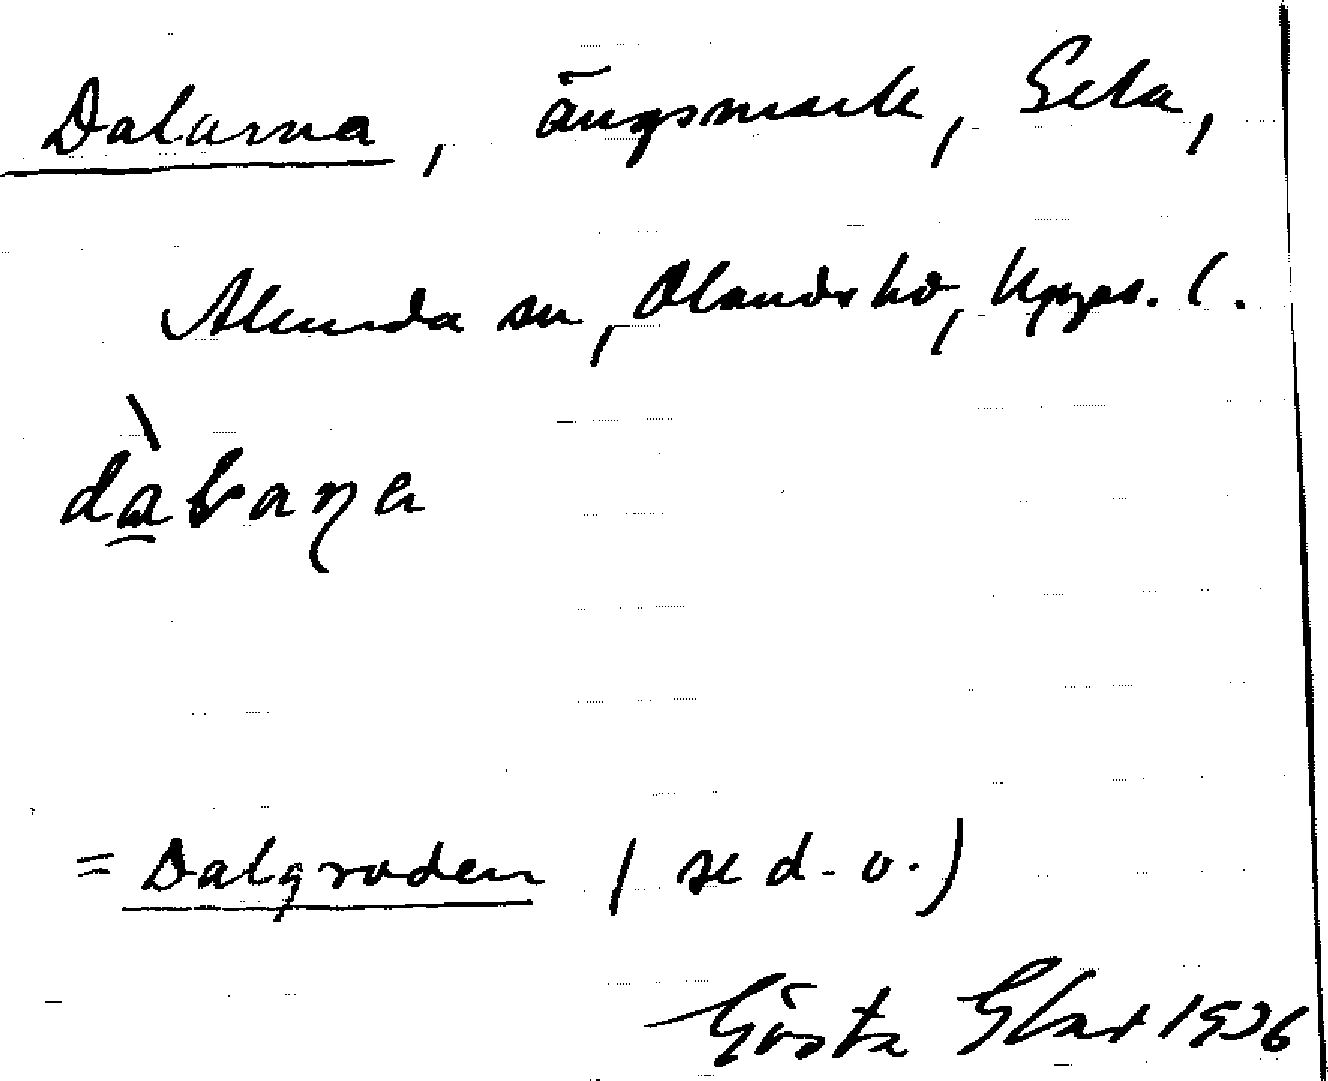 Dalarna, ängsmark, Gela,
Alunda sn, Olands hd, Upps. l.
= Dalgroden (se d. o.)
Gösta Glad 1936